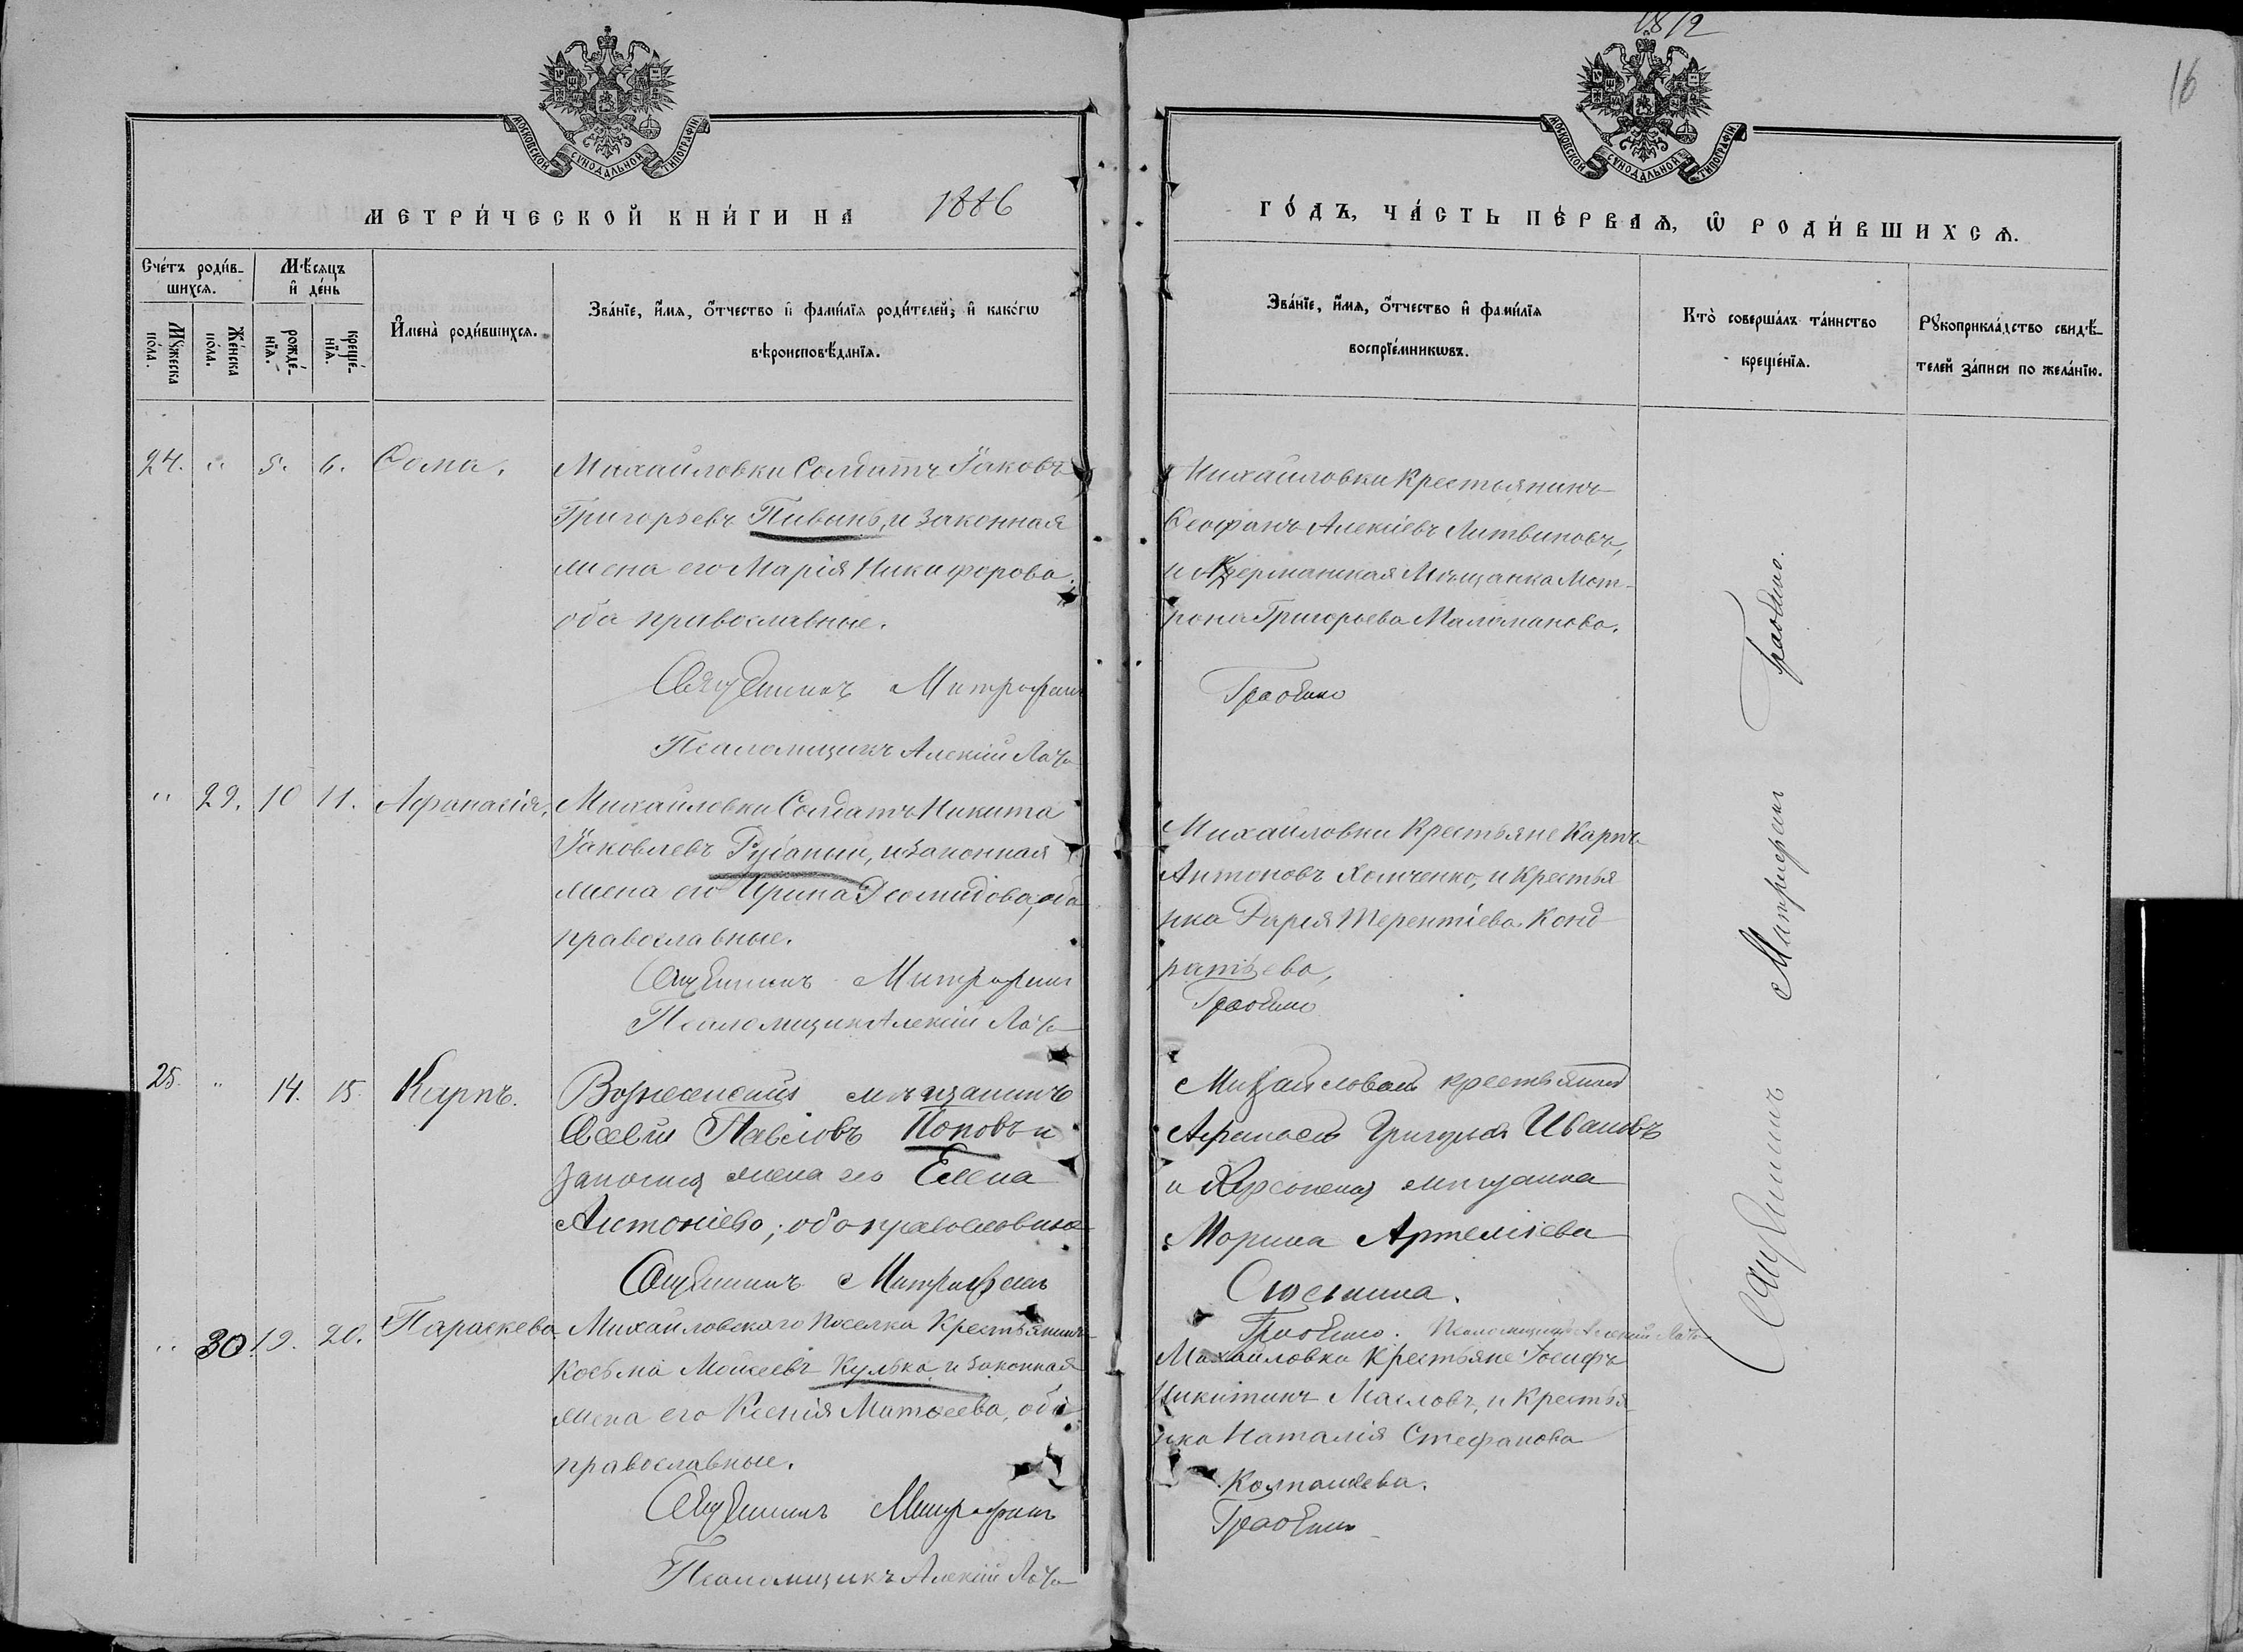 1872
16
МОСКОВСКОЙ СѴНОДАЛЬНОЙ ТИПОГРАФІИ
МОСКОВСКОЙ СѴНОДАЛЬНОЙ ТИПОГРАФІИ
МЕТРИ́ЧЕСКОЙ КНИ́ГИ НА 1886
ГО́ДЪ, ЧА́СТЬ ПЕ́РВАѦ, Ѿ РОДИ́ВШИХСѦ.
Сче́тъ роди́в-
шихсѧ.
Мѣ́сѧцъ
и҆ де́нь
Мꙋ́жеска
по́ла.
Же́нска
по́ла.
рожде́-
нїѧ.
креще́-
нїѧ.
И҆мена̀ роди́вшихсѧ.
Зва́нїе, и҆́мѧ, ѻ҆́тчество и҆ фами́лїѧ роди́телей; и҆ како́гѡ
вѣроисповѣ́данїѧ.
Зва́нїе, и҆́мѧ, ѻ҆́тчество и҆ фами́лїѧ
воспрїе́мникѡвъ.
Кто̀ соверша́лъ та́инство
креще́нїѧ.
Рꙋкоприкла́дство свидѣ́-
телей за́писи по жела́нїю.
24. " 5. 6. Ѳома.
Михайловки Солдатъ Іаковъ
Григорьевъ Пивынь, и законная
жена его Марія Никифорова
оба православные.
Священникъ Митрофанъ
Псаломщикъ Алексій
Михайловки Крестьянинъ
Ѳеофанъ Алексіевъ Литвиновъ,
и Аккерманская Мѣщанка Мот-
рона Григорьева Маломанова.
Грабенко
" 29. 10 11. Афанасія.
Михайловки Солдатъ Никита
Іаковлевъ Рубаный, и законная
жена его Ирина Діомидова, оба
православные.
Священникъ Митрофанъ
Псаломщикъ Алексій
Михайловки Крестьяне Карпъ
Антоновъ Хомченко, и Крестья
нка Дарія Терентіева Конд
ратьева,
Грабенко
25. " 14. 15. Карпъ.
Вознесенскій мѣщанинъ
Павловъ Поповъ и
законная жена его Елена
Антоніева; оба православные
Священникъ Митрофанъ
Михайловки крестьянинъ
Афанасій Григорьевъ Ивановъ
и Херсонская мѣщанка
Марина Артеміева
Грабенко. Псаломщикъ Алексій
" 30. 19. 20. Параскева
Михайловскаго поселка Крестьянинъ
Косьма Моисеевъ Кулька и законная
жена его Ксенія Матѳеева, оба
православные.
Священникъ Митрофанъ
Псаломщикъ Алексій
Михайловки Крестьяне Іосифъ
Никитинъ Масловъ, и Крестья
нка Наталія Стефанова
Грабенко
Священникъ Митрофанъ Грабенко.